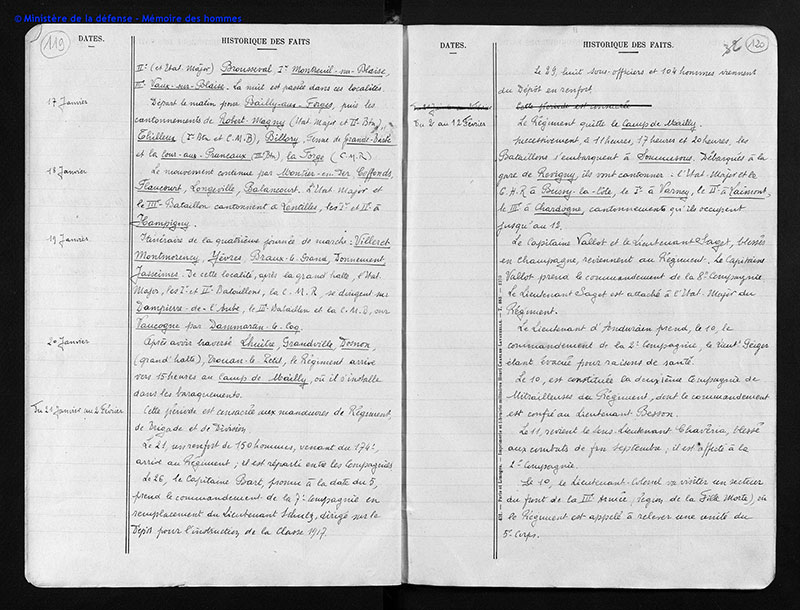 © Ministère de la défense - Mémoire des hommes
119
DATES.
HISTORIQUE DES FAITS
IIe (et Etat. Major) Brousseval Ier Montreuil-sur-Blaise,
IIIe Vaux-sur-Blaise. La nuit est passée dans ces localités.
17 Janvier
Départ le matin pour Bailly-aux-Forges, puis les
cantonnements de Robert-Magny (Etat. Major et IIe Btn)
Thilleux (Ier Btn et C.M.B), Billory, Ferme de Grande-Brie
et la Cour-aux-Pruneaux (IIIe Btn), la Forge (C.M.R)
18 Janvier
Le mouvement continue par Montier-en-Der, Ceffonds,
Flaucourt, Longeville, Balancourt. L'Etat Major et
le IIIe Bataillon cantonnent à Lentilles, les Ier et IIe à
Hampigny.
19 Janvier.
Itinéraire de la quatrième journée de marche: Villeret
Montmorency, Yèvres, Braux-le-Grand, Donnement,
Jasseines. De cette localité, après la grand halte, l'Etat.
Major, les Ier et IIe Bataillons, la C.M.R, se dirigent sur
Dampierre-de-l'Aube, le IIIe Bataillon et la C.M.B, sur
Vaucogne par Dammartin-le-Coq.
20 Janvier
Après avoir traversé Lhuître, Grandville, Dosnon,
(grand'halte), Trouan-le-Petit, le Régiment arrive
vers 15 heures au Camp de Mailly, où il s'installe
dans les baraquements.
Du 21 Janvier au 2 Février
Cette période est consacrée aux manœuvres de Régiment,
de Brigade et de Division
Le 21, un renfort de 150 hommes, venant du 174e,
arrive au Régiment; il est réparti entre les Compagnies
Le 26, le Capitaine Bart, promu à la date du 5,
prend le commandement de la 7e Compagnie en
remplacement du Lieutenant Schultz, dirigé sur le
Dépôt pour l'instruction de la Classe 1917.
DATES.
HISTORIQUE DES FAITS.
120
Le 29, huit sous-officiers et 104 hommes viennent
du Dépôt en renfort.
Cette période est consacrée
Du 2 au 12 Février
Le Régiment quitte le Camp de Mailly
successivement à 11 heures, 17 heures et 20 heures, les
Bataillons s'embarquent à Sommesous. Débarqués à la
gare de Revigny, ils vont cantonner: l'Etat-Major et le
C.H.R à Bussy-la-Côte, le Ier à Varney, le IIe à Laimont,
le IIIe à Chardogne, cantonnements qu'ils occupent
jusqu'au 12.
Le Capitaine Vallot et le Lieutenant Saget, blessés
en champagne, reviennent au Régiment. Le Capitaine
Vallot prend le commandement de la 8e Compagnie.
Le Lieutenant Saget est attaché à l'Etat-Major du
Régiment.
Le Lieutenant d'Andurain prend, le 10, le
commandement de la 2e Compagnie, le Lieut. Geiger
étant évacué pour raisons de santé.
Le 10, est constituée la deuxième Compagnie de
Mitrailleuses du Régiment, dont le commandement
est confié au Lieutenant Besson.
Le 11, revient le Sous-Lieutenant Chavéria, blessé
aux combats de fin septembre; il est affecté à la
2e Compagnie.
Le 10, le Lieutenant-Colonel va visiter un secteur
du front de la IIIe Armée (région de la Fille Morte), où
le Régiment est appelé à relever une unité du
5e Corps.